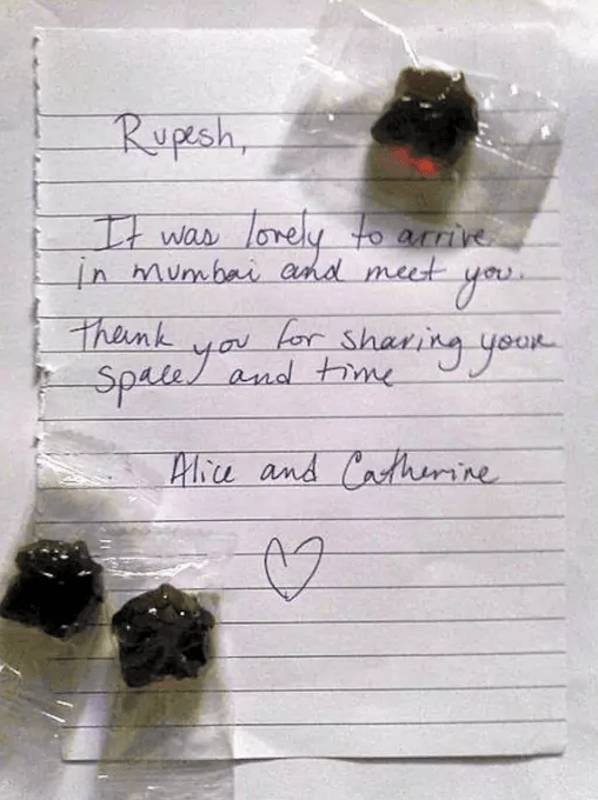 Rupesh,
It was lovely to arrive
in mumbai and meet you.
Thank you for sharing your
space and time
Alice and Catherine